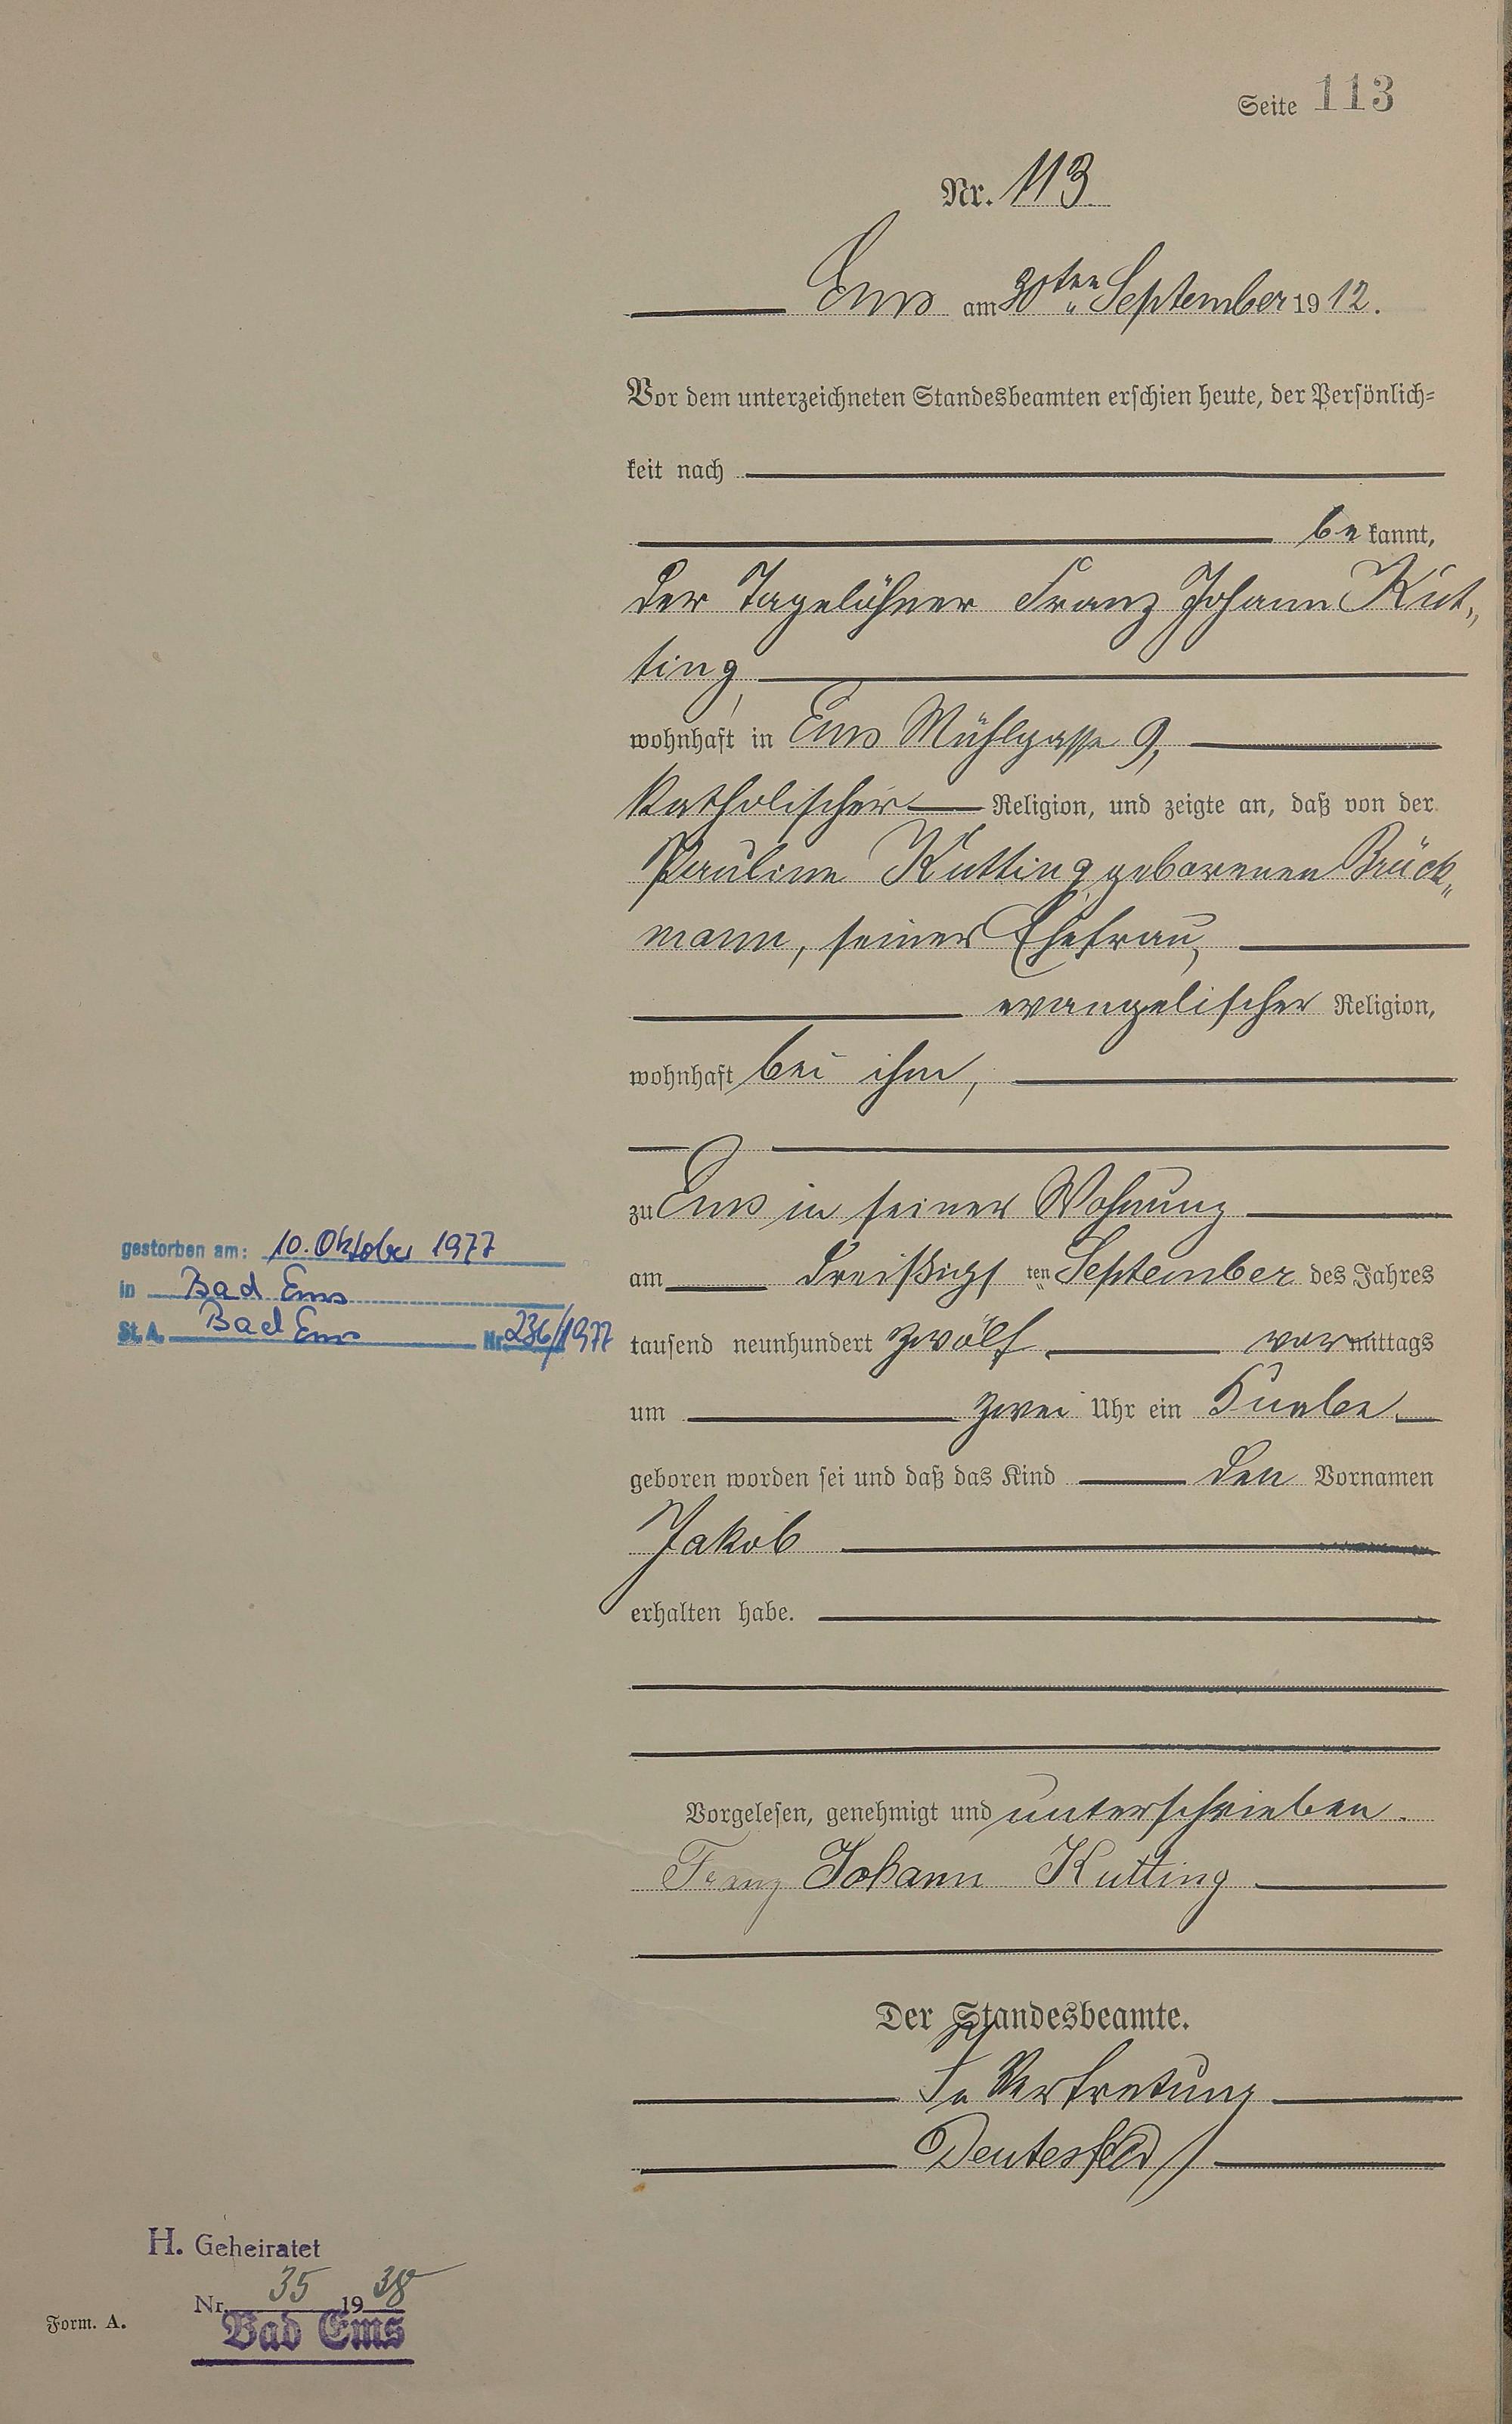 Seite 113
Nr. 113
Ems am 30ten September 1912.
Vor dem unterzeichneten Standesbeamten erschien heute, der Persönlich=
keit nach
be kannt,
der Tagelöhner Franz Johann Kut„
ting,
wohnhaft in Ems Mühlgasse 9,
katholischer Religion, und zeigte an, daß von der
Pauline Kutting geborenen Brück„
mann, seiner Ehefrau,
evangelischer Religion,
wohnhaft bei ihm,
zu Ems in seiner Wohnung
am dreißigs ten September des Jahres
tausend neunhundert zwölf vormittags
um zwei Uhr ein Knabe
geboren worden sei und daß das Kind den Vornamen
Jakob
erhalten habe.
Vorgelesen, genehmigt und unterschrieben.
Franz Johann Kutting
Der Standesbeamte.
In Vertretung
gestorben am: 10. Oktober 1977
in Bad Ems
St. A. Bad Ems Nr. 236/1977
H. Geheiratet
Nr. 35 1938
Bad Ems
Form. A.